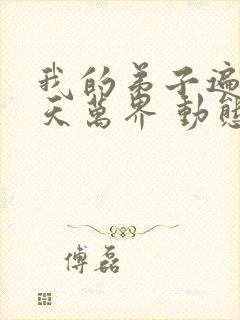 我的弟子遍
天萬界 動態
傅磊